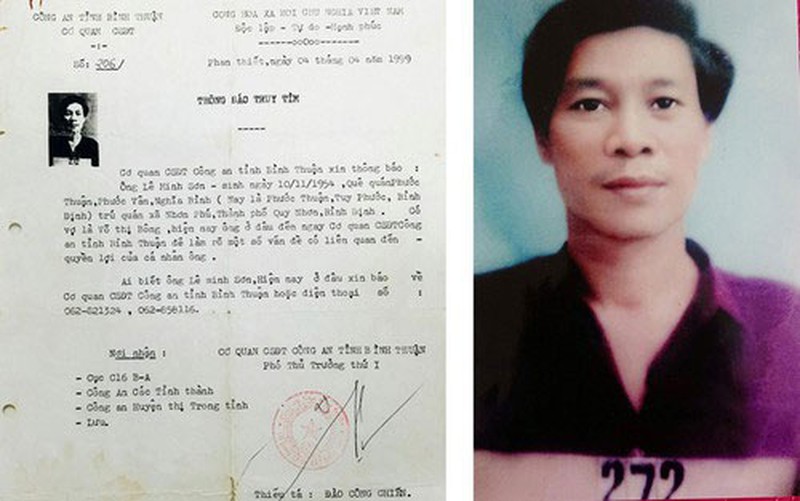 CÔNG AN TỈNH BÌNH THUẬN
CƠ QUAN CSĐT
-:-
Số: 206/
CỘNG HÒA XÃ HỘI CHỦ NGHĨA VIỆT NAM
Độc lập - Tự do - Hạnh phúc
------ooOoo------
Phan thiết, ngày 04 tháng 04 năm 1999
THÔNG BÁO TRUY TÌM
-----
Cơ quan CSĐT Công an tỉnh Bình Thuận xin thông báo :
Ông Lê Minh Sơn - sinh ngày 10/11/1954 , Quê quán Phước
Thuận, Phước Vân, Nghĩa Bình ( Nay là Phước Thuận, Tuy Phước, Bình
Định) trú quán xã Nhơn Phú, Thành phố Quy Nhơn, Bình Định . Có
vợ là Võ thị Bông , hiện nay ông ở đâu đến ngay Cơ quan CSĐT Công
an tỉnh Bình Thuận để làm rõ một số vấn đề có liên quan đến -
quyền lợi của cá nhân ông .
Ai biết ông Lê minh Sơn, Hiện nay ở đâu xin báo về
Cơ quan CSĐT Công an tỉnh Bình Thuận hoặc điện thoại số :
062-821324 , 062-858116.
Nơi nhận :
- Cục C16 B-A
- Công An Các Tỉnh thành
- Công an Huyện thị Trong tỉnh
- Lưu.
CƠ QUAN CSĐT CÔNG AN TỈNH BÌNH THUẬN
Phó Thủ Trưởng thứ I
Thiếu tá : ĐÀO CÔNG CHIẾN.
272